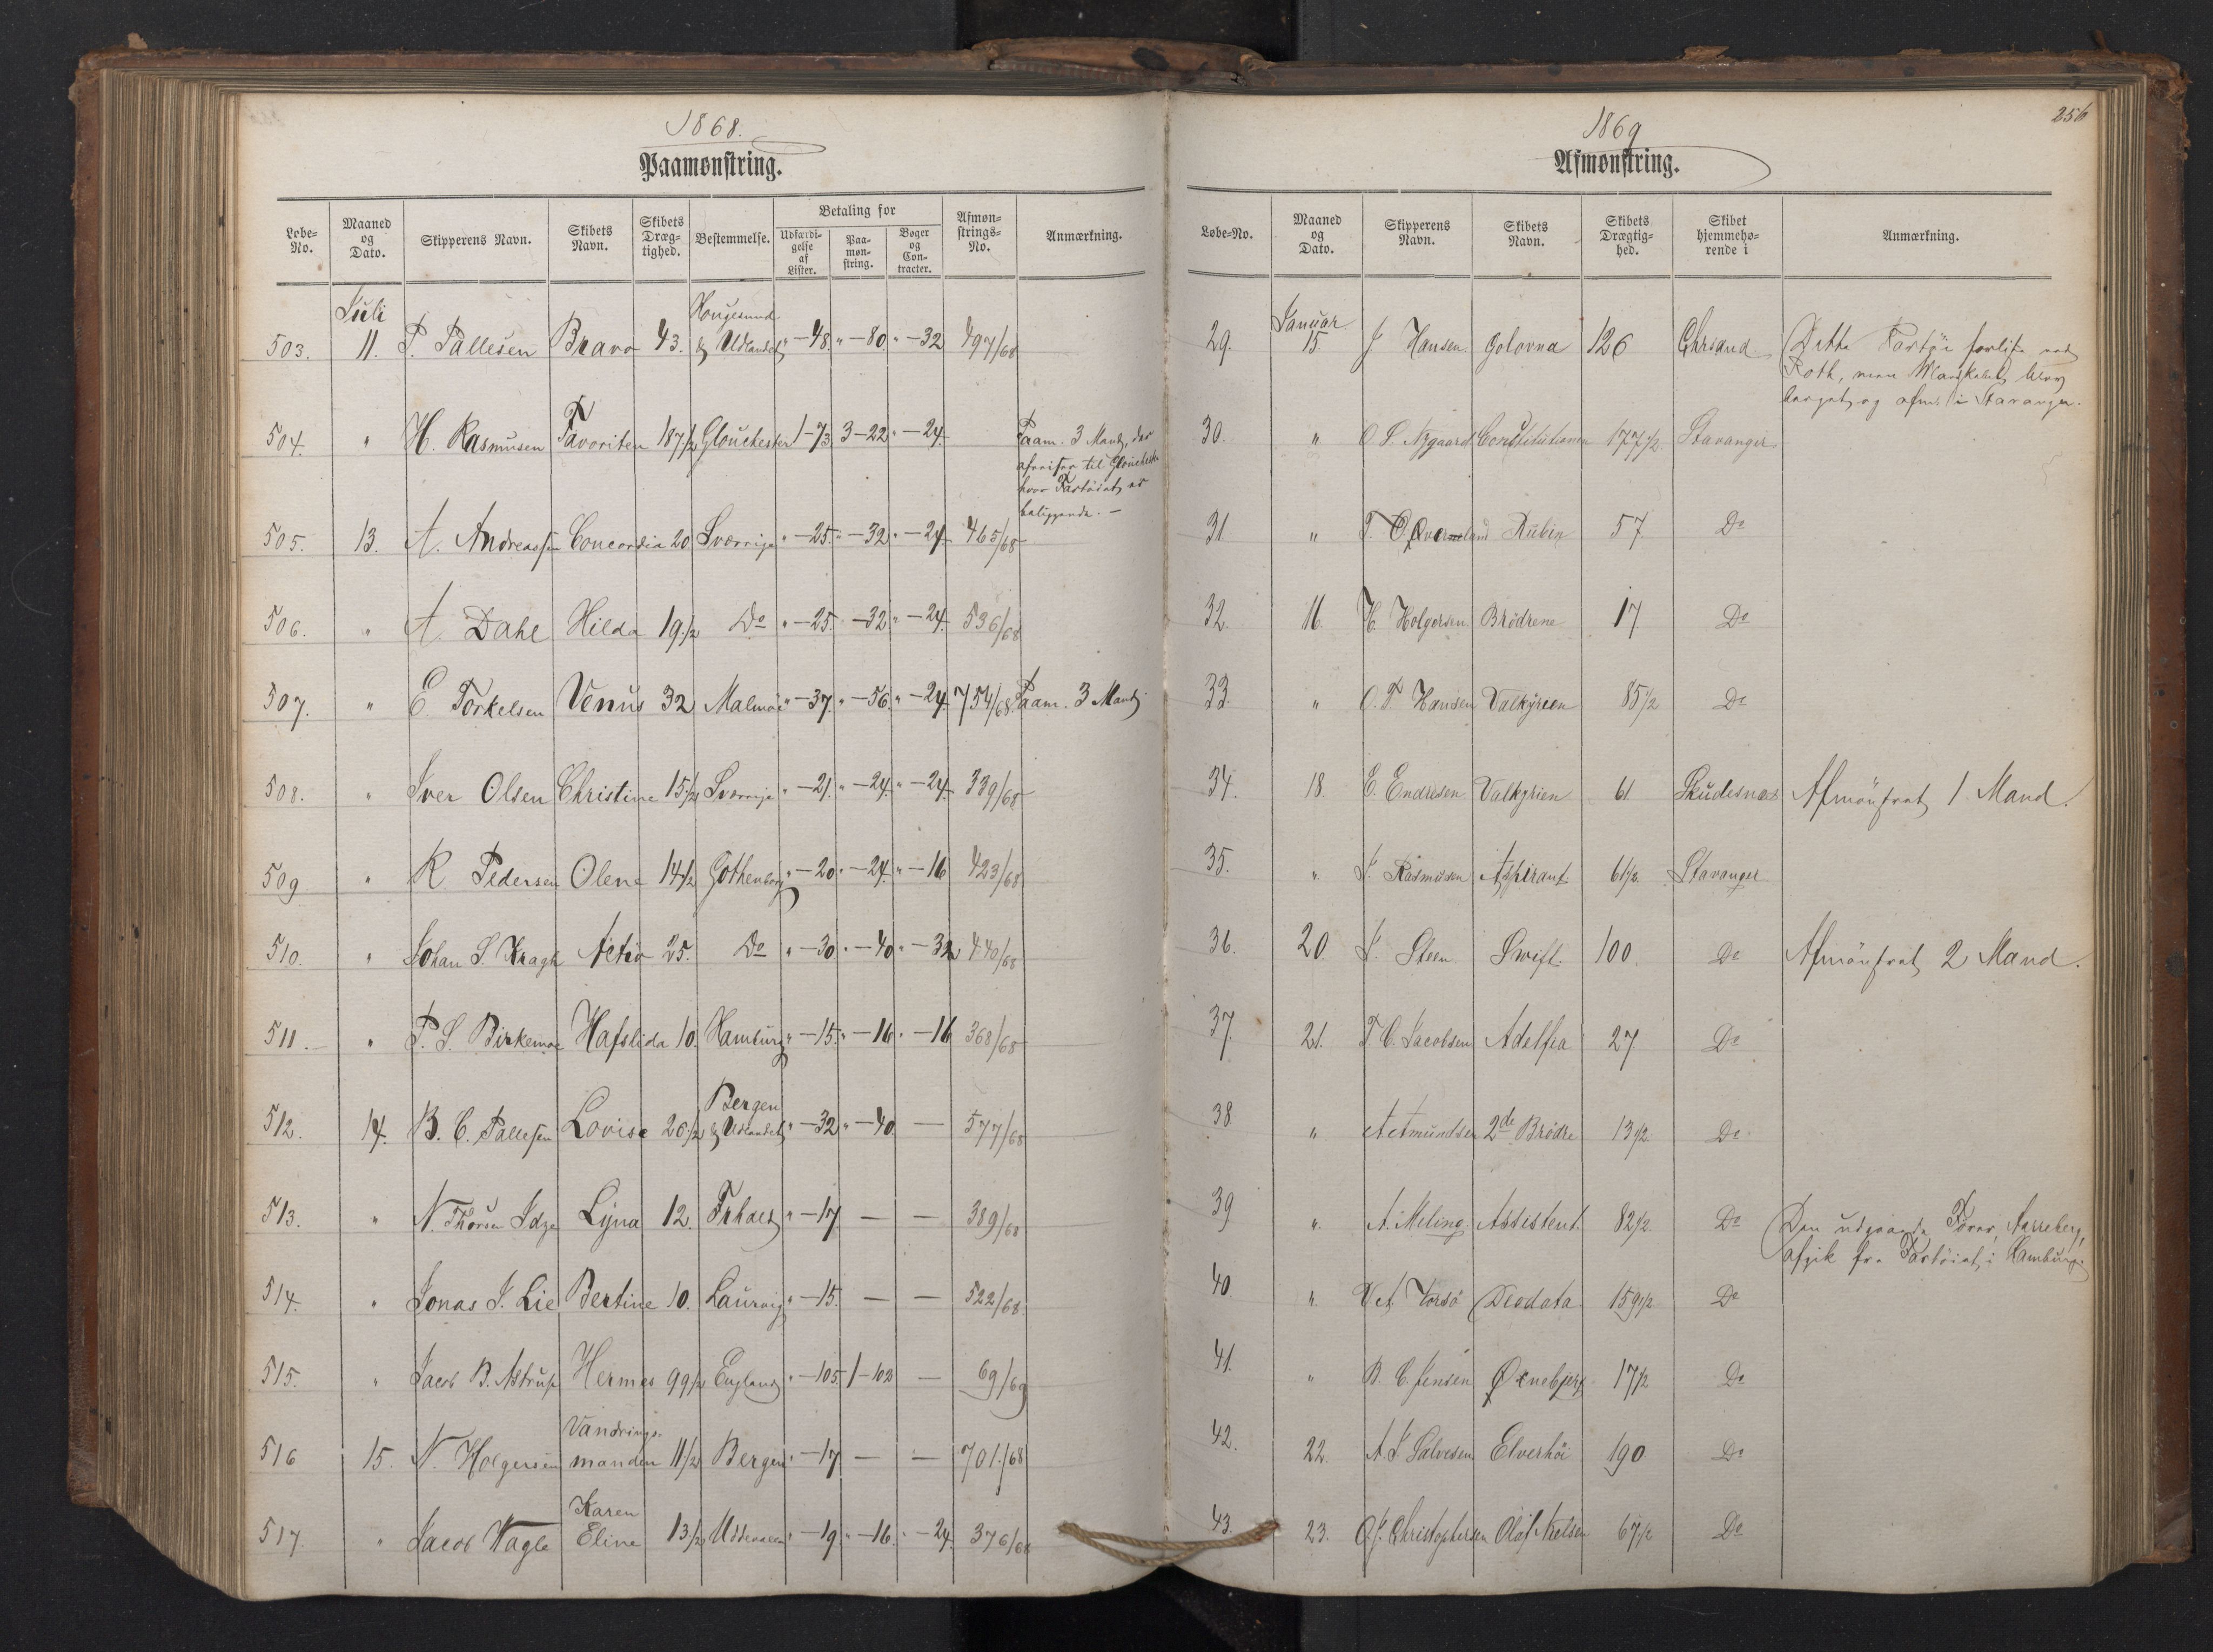 1868.
Paamønstring.
Løbe-No. Maaned og Dato. Skipperens Navn. Skibets Navn. Skibets Dræg-tighed. Bestemmelse. Betaling for Udfærdi-gelse af Lister. Paa-møn-string. Bøger og Con-tracter. Afmøn-strings-No. Anmærkning.
Juli
Hougesund
503. 11. P. Pallesen Bravo 43. & Udlandet " - 48. " - 80. " - 32 497/68
504. " H. Rasmusen Favoriten 187 1/2 Glouchester 1 - 73 3 - 22 " - 24. Paam. 3 Mand, der
afreiser til Glouchester
hvor Fartöiet er
beliggende. -
505. 13. A. Andreassen Concordia 20 Sverrige " - 25. " - 32 " - 24. 465/68
506. " A. Dahl Hilda 19 1/2 Do " - 25. " - 32 " - 24. 536/68
507. " E. Torkelsen Venus 32 Malmöe " - 37. " - 56. " - 24. 754/68. Paam. 3 Mand
508. " Iver Olsen Christine 15 1/2 Sverrige " - 21. " - 24. " - 24. 339/68
509 " R Pedersen Olene 14 1/2 Gothenborg " - 20 " - 24. " - 16 423/68
510. " Johan S. Kragh Activ 25. Do " - 30 " - 40 " - 32 440/68
511. " P. S. Birkemoe Hafslida 10. Hamburg " - 15. " - 16 " - 16 368/68
Bergen
512. 14. B. C. Pallesen Lovise 26 1/2 & Udlandet " - 32 " - 40 — 577/68
513. " N. Thorsen Lyna 12. Frhald " - 17 — — 389/68
514. " Jonas J. Lie Bertine 10. Laurvig " - 15. — — 522/68.
515. " Jacob B. Astrup Hermes 99 1/2 England " - 105. 1 - 102 — 69/69
Vandrings-
516 15. N. Holgersen manden 11 1/2 Bergen " - 17 — — 701./68
Karen
517. " Jacob Vagle Eline 13 1/2 Uddevalla " - 19 " - 16. " - 24. 376/68
256
1869
Afmønstring.
Løbe-No. Maaned og Dato. Skipperens Navn. Skibets Navn. Skibets Drægtig-hed. Skibet hjemmehø-rende i Anmærkning.
Januar
29. 15 J. Hansen Golovna 126 Chrsand Dette Fartöi forliste ved
Roth, men Mandskabet blev
berget og afm. i Stavanger.
30. " O. S. Nygaard Constitutionen 177 1/2 Stavanger
31 " T. Qvarneland Rubin 57 Do
32. 16. H. Holgersen Brödrene 17 Do
33. " O. T. Hansen Valkyrien 85 1/2 Do
34. 18. E. Endresen Valkyrien 61 Skudesnæs Afmönstret 1 Mand.
35. " J. Rasmusen Aspirant 61 1/2 Stavanger
36. 20 J. Steen Swift 100 Do Afmönstret 2 Mand.
37. 21. T. C. Jacobsen Adelfia 27 Do
38 " A Amundsen 2de Brödre 13 1/2 Do
39 " A. Meling Assistent. 82 1/2 Do Den udgaaede Förer, Aarreberg,
afgik fra Fartöiet i Hamburg.
40. " Deodata 159 1/2 Do
41. " B. C. Jensen Øxnebjerg 17 1/2 Do
42. 22. A. S. Salvesen Elverhöi 190 Do
43. 23. O. J. Christophersen Olaf Kielsen 67 1/2 Do